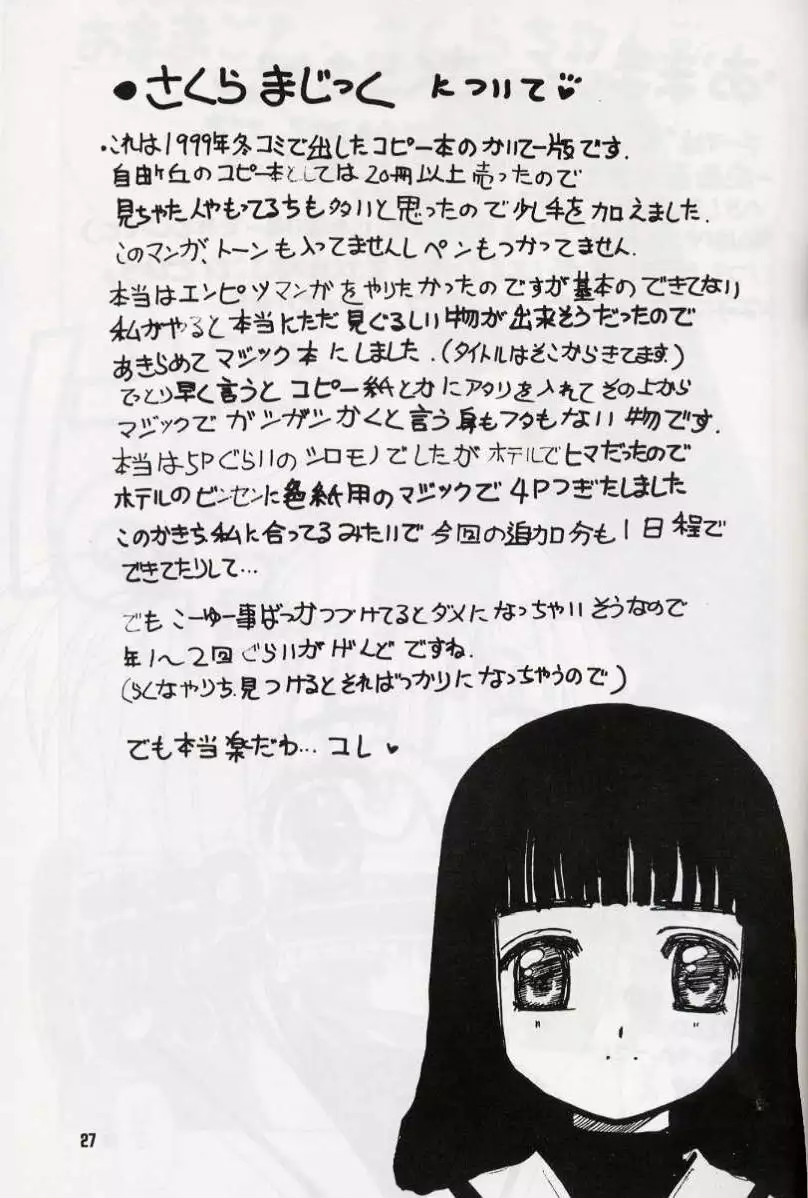 ●さくらまじっく について♡
・これは1999年冬コミで出したコピー本のかいてー版です.
自由ヶ丘のコピー本としては20冊以上売ったので
見ちゃた人やもってる方も多いと思ったので少し手を加えました.
このマンガ、トーンも入ってませんしペンもつかってません.
本当はエンピツマンガをやりたかったのですが基本のできてない
私がやると本当にただ見ぐるしい物が出来そうだったので
あきらめてマジック本にしました.(タイトルはそこからきてます.)
てっとり早く言うとコピー紙とかにアタリを入れてその上から
マジックでガシガシかくと言う身もフタもない物です.
本当は5Pぐらいのシロモノでしたがホテルでヒマだったので
ホテルのビンセンに色紙用のマジックで4Pつぎたしました
このかき方私に合ってるみたいで今回の追加分も1日程で
できてたりして…
でもこーゆー事ばっかつづけてるとダメになっちゃいそうなので
年1〜2回ぐらいがげんどですね.
(らくなやり方見つけるとそればっかりになっちゃうので)
でも本当楽だわ…コレ♥
27